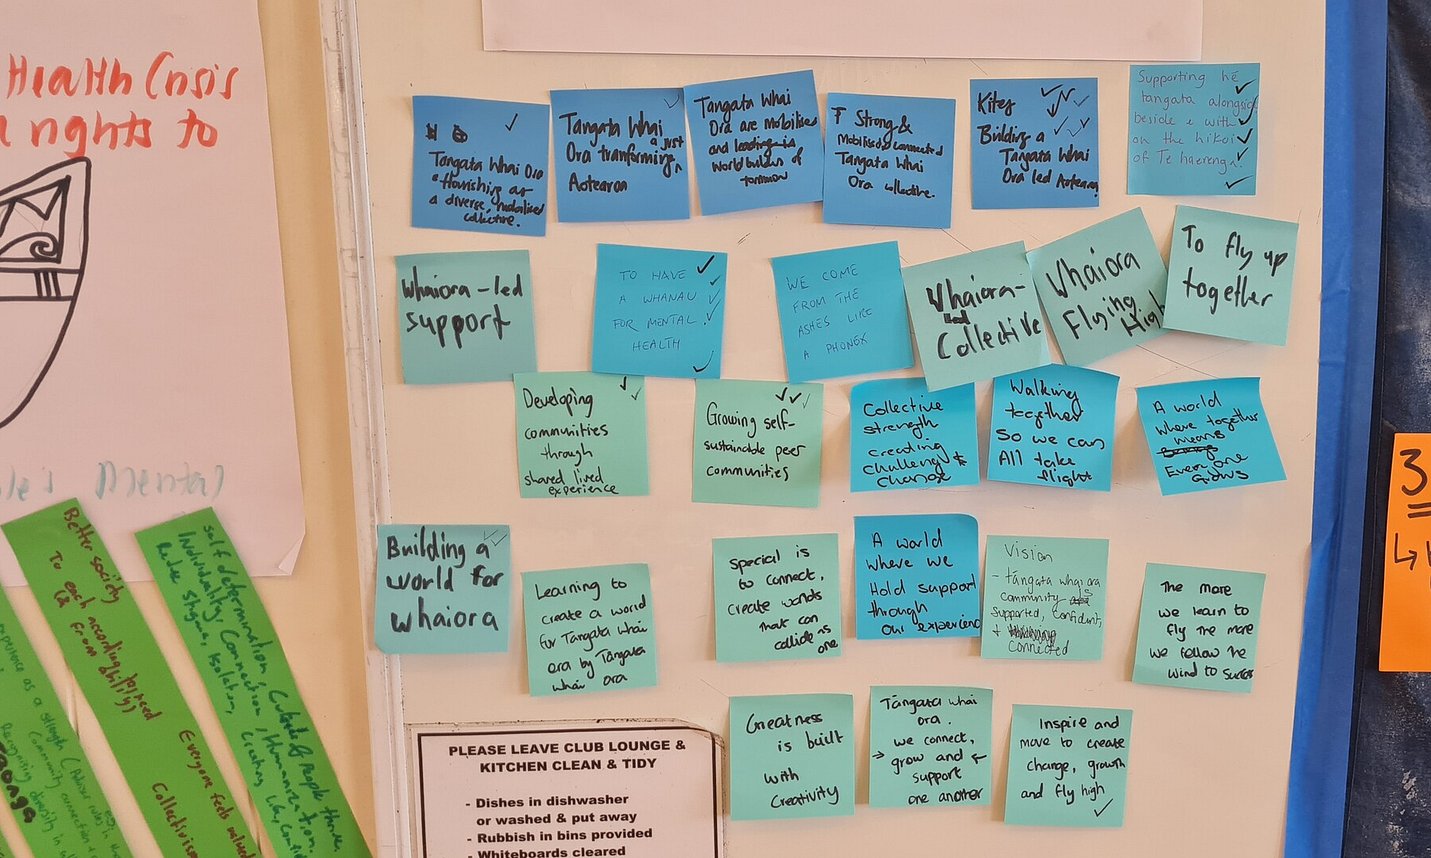 Health Crisis
rights to
Mental
Tangata Whai Ora
flourishing as
a diverse, mobilised
collective.
Tangata Whai
a just
Ora tranforming
Aotearoa
Tangata Whai
Ora are Mobilised
and leading
World builders of
tomorrow
Strong &
Mobilised & connected
Tangata Whai
Ora collective.
Kites
Building a
Tangata Whai
Ora led Aotearoa
Supporting he
tangata alongside
beside & with
on the hikoi
of Te haerenga.
Whaiora-led
support
TO HAVE
A WHANAU
FOR MENTAL
HEALTH
WE COME
FROM THE
ASHES LIKE
A PHONEX
Whaiora-
led
Collective
Whaiora
Flying
High
To fly up
together
Developing
communities
through
shared lived
experience
Growing self-
sustainable peer
communities
Collective
strength
creating
challenge &
change
Walking
together
So we can
All take
flight
A world
where together
means
Everyone
Grows
Building a
world for
whaiora
Learning to
create a world
for Tangata whai
ora by Tangata
whai ora
Special is
to connect,
create worlds
that can
collide as
one
A world
where we
Hold support
through
our experience
Vision
- tāngata whai ora
community
supported, confident,
+
connected
The more
we learn to
fly the more
we follow the
wind to success
Greatness
is built
with
Creativity
Tāngata whai
ora.
we connect,
→ grow and ←
support
one another
Inspire and
move to create
change, growth
and fly high
PLEASE LEAVE CLUB LOUNGE &
KITCHEN CLEAN & TIDY
- Dishes in dishwasher
or washed & put away
- Rubbish in bins provided
- Whiteboards cleared
Better society
To each according to need
& from ability
Everyone feels valued
Collectivism
Self determination, Culture of People thrive
Individually, Connection, Humanization,
Reduce Stigma, Isolation,
3